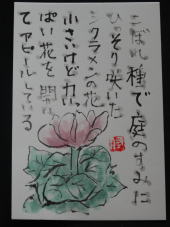 こぼれ種で庭のすみに
ひっそり咲いた
シクラメンの花
小さいけど力いっ
ぱい花を開い
てアピールしている